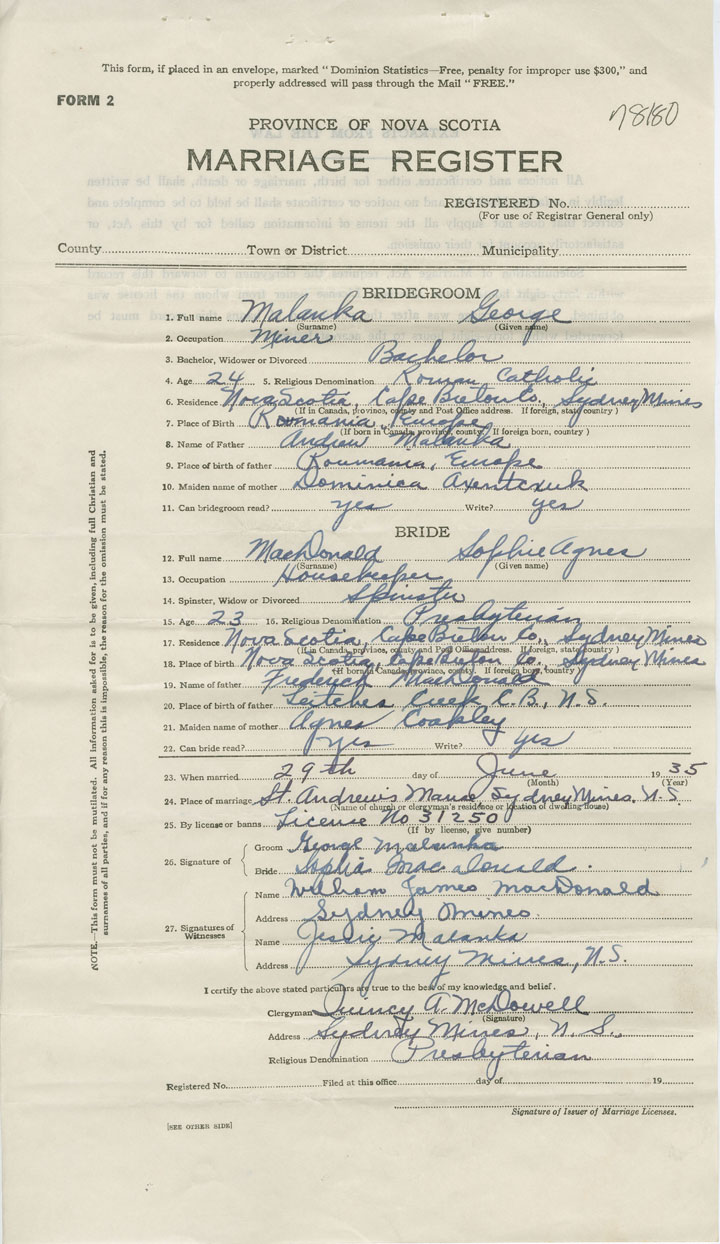 This form, if placed in an envelope, marked "Dominion Statistics—Free, penalty for improper use $300," and
properly addressed will pass through the Mail "FREE."
FORM 2
n8180
PROVINCE OF NOVA SCOTIA
MARRIAGE REGISTER
REGISTERED No.
(For use of Registrar General only)
County Town or District Municipality
BRIDEGROOM
1. Full name Malanka George
(Surname) (Given name)
2. Occupation Miner
3. Bachelor, Widower or Divorced Bachelor
4. Age 24 5. Religious Denomination Roman Catholic
6. Residence Nova Scotia, Cape Breton Co., Sydney Mines
(If in Canada, province, county and Post Office address. If foreign, state country)
7. Place of Birth Roumania, Europe
(If born in Canada, province, county. If foreign born, country)
8. Name of Father Andrew Malanka
9. Place of birth of father Roumania, Europe
10. Maiden name of mother Dominica Axentzuk
11. Can bridegroom read? yes Write? yes
BRIDE
12. Full name MacDonald Sophie Agnes
(Surname) (Given name)
13. Occupation Housekeeper
14. Spinster, Widow or Divorced Spinster
15. Age 23 16. Religious Denomination Presbyterian
17. Residence Nova Scotia, Cape Breton Co., Sydney Mines
(If in Canada, province, county and Post Office address. If foreign, state country)
18. Place of birth Nova Scotia, Cape Breton Co. Sydney Mines
(If born in Canada, province, county. If foreign born, country)
19. Name of father Frederick MacDonald
20. Place of birth of father Leitches Creek C.B., N.S.
21. Maiden name of mother Agnes Coakley
22. Can bride read? yes Write? yes
23. When married 29th day of June 1935
(Month) (Year)
24. Place of marriage St. Andrew's Manse, Sydney Mines, N.S.
(Name of church or clergyman's residence or location of dwelling house)
25. By license or banns License No 31250
(If by license, give number)
26. Signature of
Groom George Malanka
Bride Sophia MacDonald.
27. Signatures of Witnesses
Name William James MacDonald
Address Sydney Mines.
Name Jessie Malanka
Address Sydney Mines, N.S.
I certify the above stated particulars are true to the best of my knowledge and belief.
Clergyman Quincy A. McDowell
(Signature)
Address Sydney Mines, N.S.
Religious Denomination Presbyterian
Registered No. Filed at this office day of 19
Signature of Issuer of Marriage Licenses.
[SEE OTHER SIDE]
NOTE.—This form must not be mutilated. All information asked for is to be given, including full Christian and
surnames of all parties, and if for any reason this is impossible, the reason for the omission must be stated.